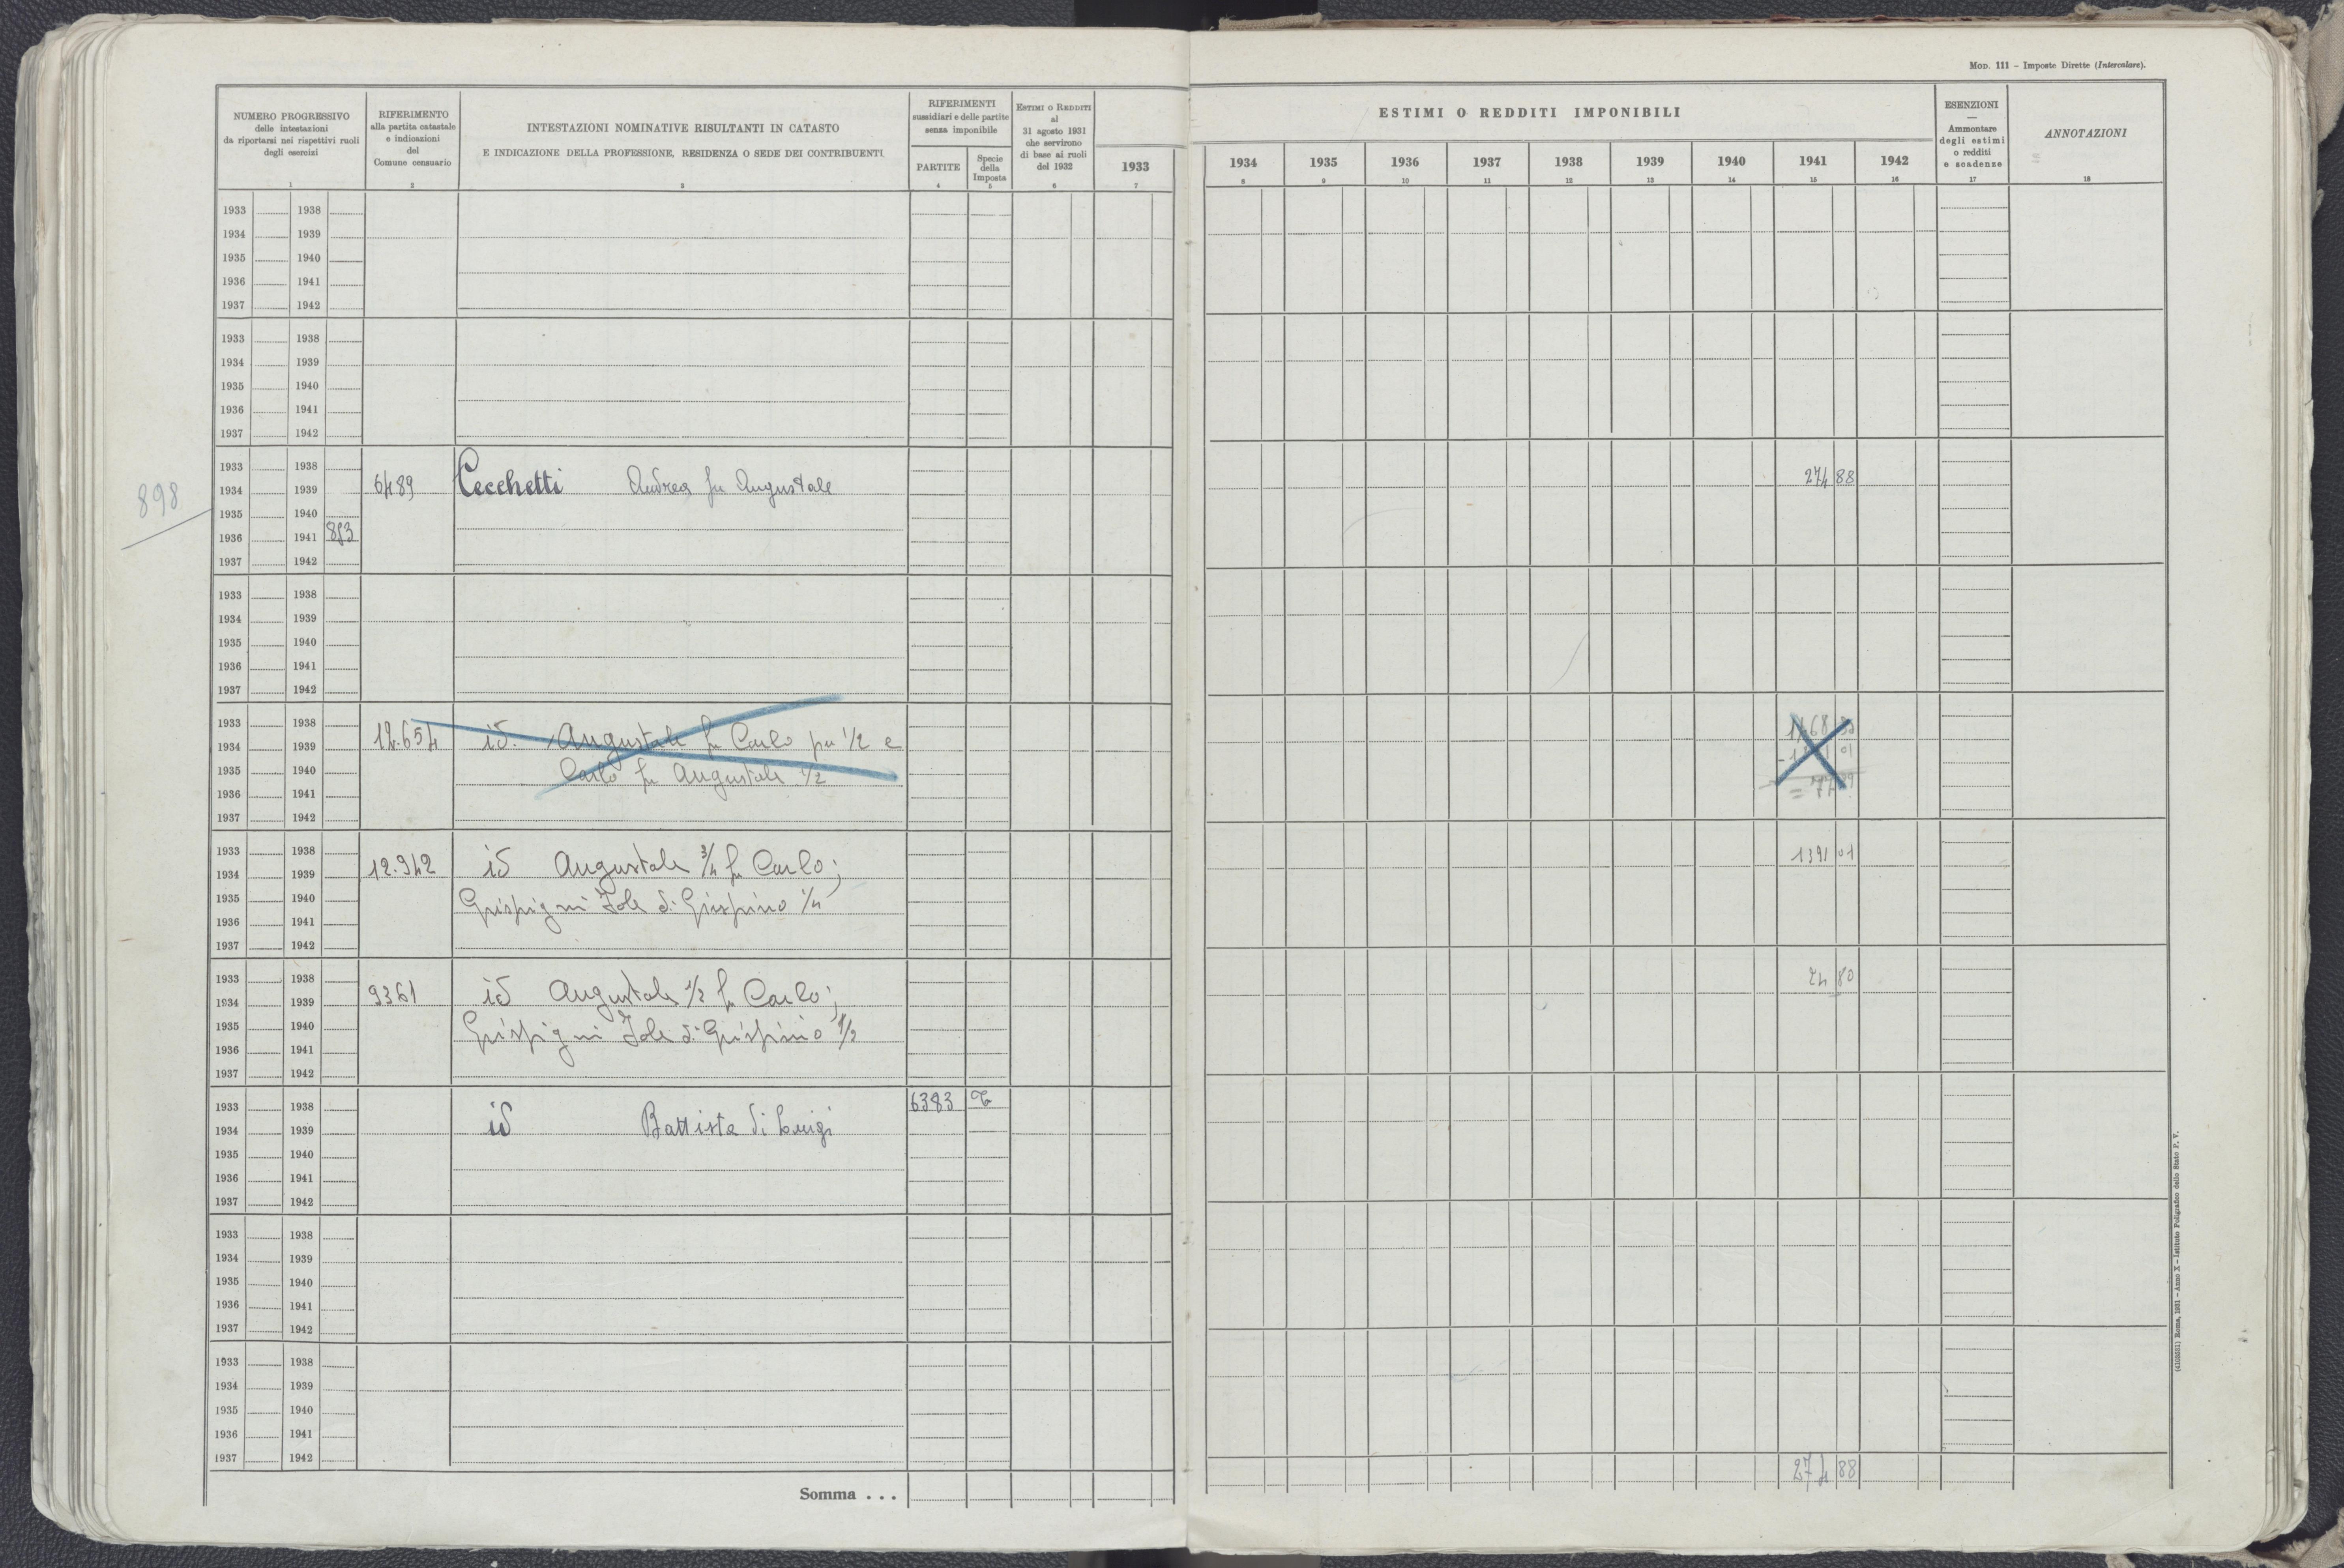 MOD. 111 – Imposte Dirette (Intercalare).
NUMERO PROGRESSIVO
delle intestazioni
da riportarsi nei rispettivi ruoli
degli esercizi
1
RIFERIMENTO
alla partita catastale
e indicazioni
del
Comune censuario
2
INTESTAZIONI NOMINATIVE RISULTANTI IN CATASTO
E INDICAZIONE DELLA PROFESSIONE, RESIDENZA O SEDE DEI CONTRIBUENTI
3
RIFERIMENTI
sussidiari e delle partite
senza imponibile
PARTITE
4
Specie
della
Imposta
5
ESTIMI O REDDITI
al
31 agosto 1931
che servirono
di base ai ruoli
del 1932
6
1933
7
ESTIMI O REDDITI IMPONIBILI
1934 1935 1936 1937 1938 1939 1940 1941 1942
8 9 10 11 12 13 14 15 16
ESENZIONI
—
Ammontare
degli estimi
o redditi
e scadenze
17
ANNOTAZIONI
18
1933 1938
1934 1939
1935 1940
1936 1941
1937 1942
1933 1938
1934 1939
1935 1940
1936 1941
1937 1942
898
1933 1938
1934 1939 6489 Cecchetti Andrea fu Augustale 274 88
1935 1940
1936 1941
1937 1942
1933 1938
1934 1939
1935 1940
1936 1941
1937 1942
1933 1938
1934 1939 12.654 id. Augustale fu Carlo per 1/2 e
1935 1940 Carlo fu Augustale 1/2
1936 1941
1937 1942
1933 1938
1934 1939 12.942 id Augustale 3/4 fu Carlo; 1391 01
1935 1940 Grispigni Iole di Grispino 1/4
1936 1941
1937 1942
1933 1938
1934 1939 9361 id Augustale 1/2 fu Carlo; 24 80
1935 1940 Grispigni Iole di Grispino 1/2
1936 1941
1937 1942
1933 1938 6383
1934 1939 id Battista di Luigi
1935 1940
1936 1941
1937 1942
1933 1938
1934 1939
1935 1940
1936 1941
1937 1942
1933 1938
1934 1939
1935 1940
1936 1941
1937 1942
Somma . . . 274 88
(4103551) Roma, 1931 – Anno X – Istituto Poligrafico dello Stato P. V.